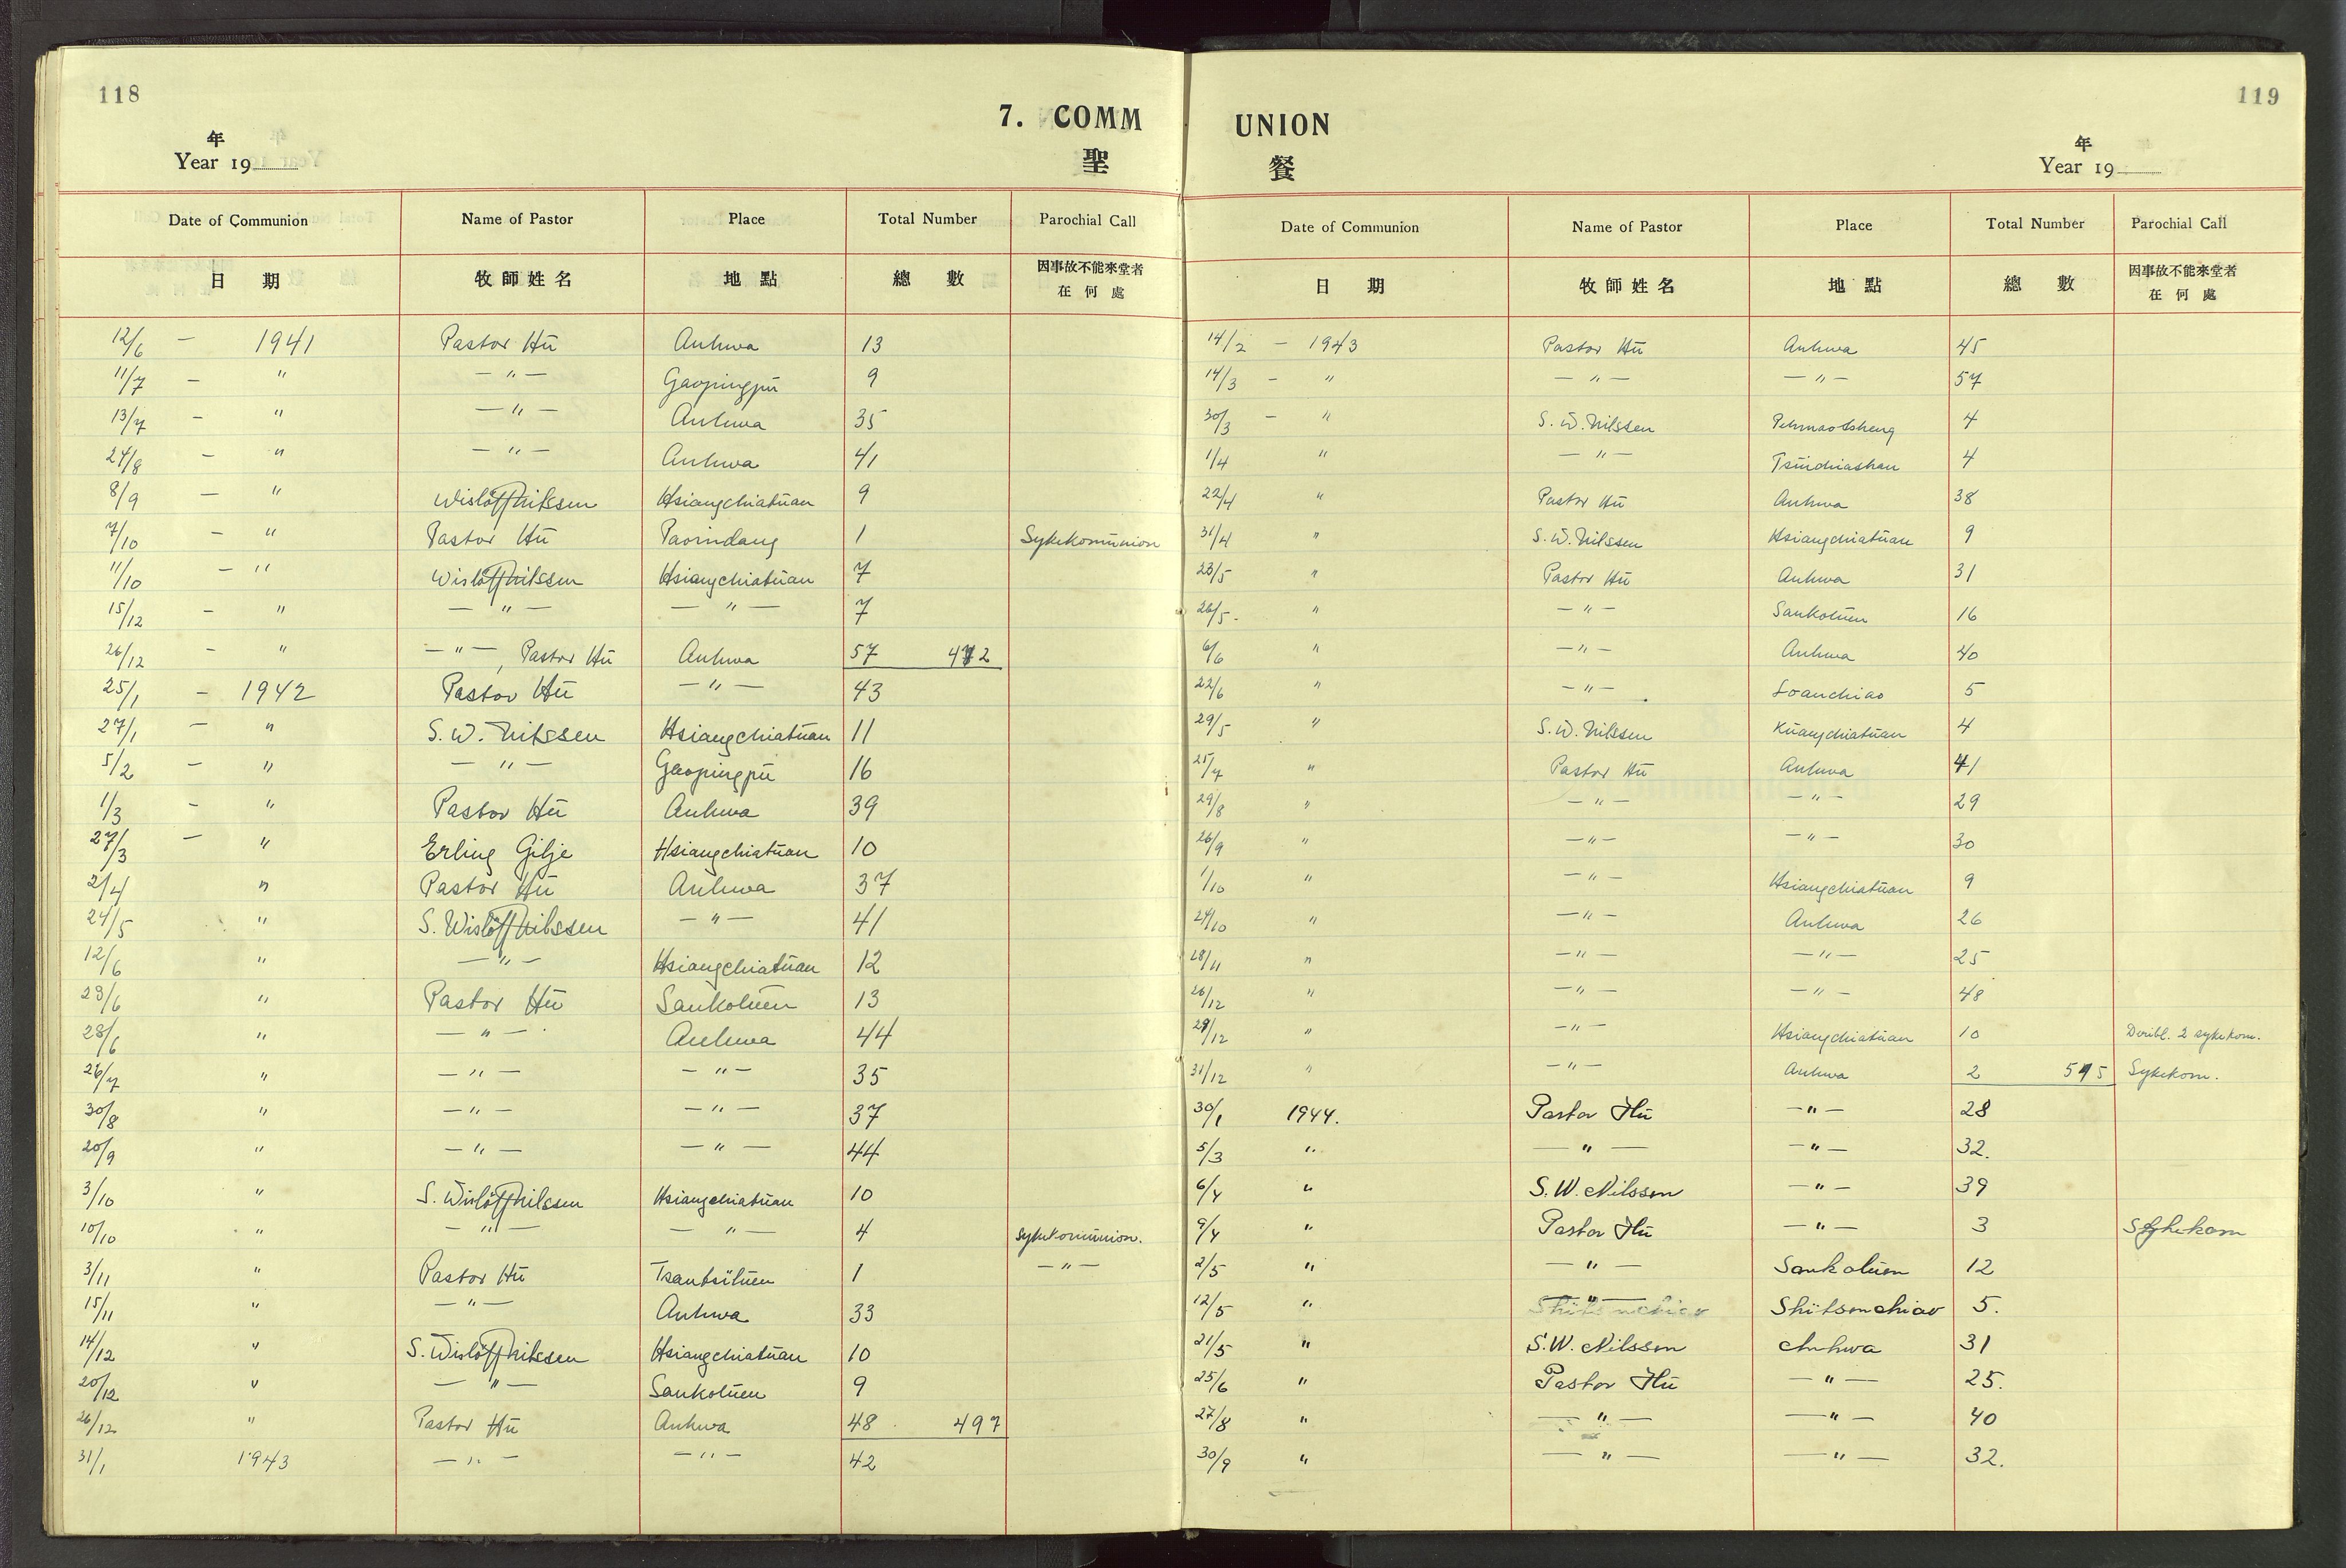 118
7. COMM
年
Year 19
聖
Date of Communion Name of Pastor Place Total Number Parochial Call
日 期 牧師姓名 地點 總 數 因事故不能來堂者
在何處
12/6 – 1941 Pastor Hü Anhwa 13
11/7 – " — " — Gaopingpü 9
13/7 – " — " — Anhwa 35
24/8 – " — " — Anhwa 41
8/9 – " Wislöff Nilssen Hsiangchiatüan 9
7/10 – " Pastor Hü 1 Sykekomünion
11/10 – " Wislöff Nilssen Hsiangchiatüan 7
15/12 – " — " — — " — 7
26/12 – " — " —, Pastor Hü Anhwa 57 472
25/1 – 1942 Pastor Hü — " — 43
27/1 – " S. W. Nilssen Hsiangchiatüan 11
5/2 – " — " — Gaopingpü 16
1/3 – " Pastor Hü Anhwa 39
27/3 – " Erling Gilje Hsiangchiatüan 10
2/4 " Pastor Hü Anhwa 37
24/5 " S. Wislöff Nilssen — " — 41
12/6 " — " — Hsiangchiatüan 12
23/6 " Pastor Hü Sankotüen 13
28/6 " — " — Anhwa 44
26/7 " — " — — " — 35
30/8 " — " — — " — 37
20/9 " — " — — " — 44
3/10 " S. Wislöff Nilssen Hsiangchiatüan 10
10/10 " — " — — " — 4 Sykekomünion.
3/11 " Pastor Hü Tsantsïtüen 1 — " —
15/11 " — " — Anhwa 33
14/12 " S. Wislöff Nilssen Hsiangchiatüan 10
20/12 " — " — Sankotüen 9
26/12 " Pastor Hü Anhwa 48 497
31/1 1943 — " — — " — 42
119
UNION
年
Year 19
餐
Date of Communion Name of Pastor Place Total Number Parochial Call
日 期 牧師姓名 地點 總 數 因事故不能來堂者
在何處
14/2 – 1943 Pastor Hü Anhwa 45
14/3 – " — " — — " — 57
30/3 – " S. W. Nilssen 4
1/4 " — " — 4
22/4 " Pastor Hü Anhwa 38
31/4 " S. W. Nilssen Hsiangchiatüan 9
23/5 " Pastor Hü Anhwa 31
26/5 " — " — Sankotüen 16
6/6 " — " — Anhwa 40
22/6 " — " — Loanchiao 5
29/5 " S. W. Nilssen Küangchiatüan 4
25/7 " Pastor Hü Anhwa 41
29/8 " — " — — " — 29
26/9 " — " — — " — 30
1/10 " — " — Hsiangchiatüan 9
24/10 " — " — Anhwa 26
28/11 " — " — — " — 25
26/12 " — " — — " — 48
29/12 " — " — Hsiangchiatüan 10 2 sykekom.
31/12 " — " — Anhwa 2 515 Sykekom.
30/1 1944. Pastor Hü — " — 28
5/3 " — " — — " — 32.
6/4 " S. W. Nilssen — " — 39
9/4 " Pastor Hü — " — 3 Sykekom
2/5 " — " — Sankotüen 12
12/5 " — " — Shïtsenchiao 5.
21/5 " S. W. Nilssen Anhwa 31
25/6 " Pastor Hü — " — 25.
27/8 " — " — — " — 40
30/9 " — " — — " — 32.